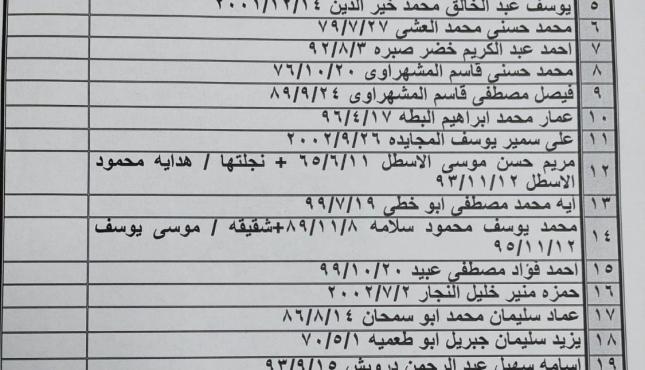 ٥ يوسف عبد الخالق محمد خير الدين ٢٠٠١/١٢/١٤
٦ محمد حسنى محمد العشي ٧٩/٧/٢٧
٧ احمد عبد الكريم خضر صبره ٩٢/٨/٣
٨ محمد حسنى قاسم المشهراوى ٧٦/١٠/٢٠
٩ فيصل مصطفى قاسم المشهراوى ٨٩/٩/٢٤
١٠ عمار محمد ابراهيم البطه ٩٦/٤/١٧
١١ على سمير يوسف المجايده ٢٠٠٢/٩/٢٦
١٢ مريم حسن موسى الاسطل ٦٥/٦/١١ + نجلتها / هدايه محمود
الاسطل ٩٣/١١/١٢
١٣ ايه محمد مصطفى ابو خطى ٩٩/٧/١٩
١٤ محمد يوسف محمود سلامه ٨٩/١١/٨+شقيقه / موسى يوسف
٩٥/١١/١٢
١٥ احمد فؤاد مصطفى عبيد ٩٩/١٠/٢٠
١٦ حمزه منير خليل النجار ٢٠٠٢/٧/٢
١٧ عماد سليمان محمد ابو سمحان ٨٦/٨/١٤
١٨ يزيد سليمان جبريل ابو طعميه ٧٠/٥/١
١٩ اسامه سهيل عبد الرحمن درويش ٩٣/٩/١٥